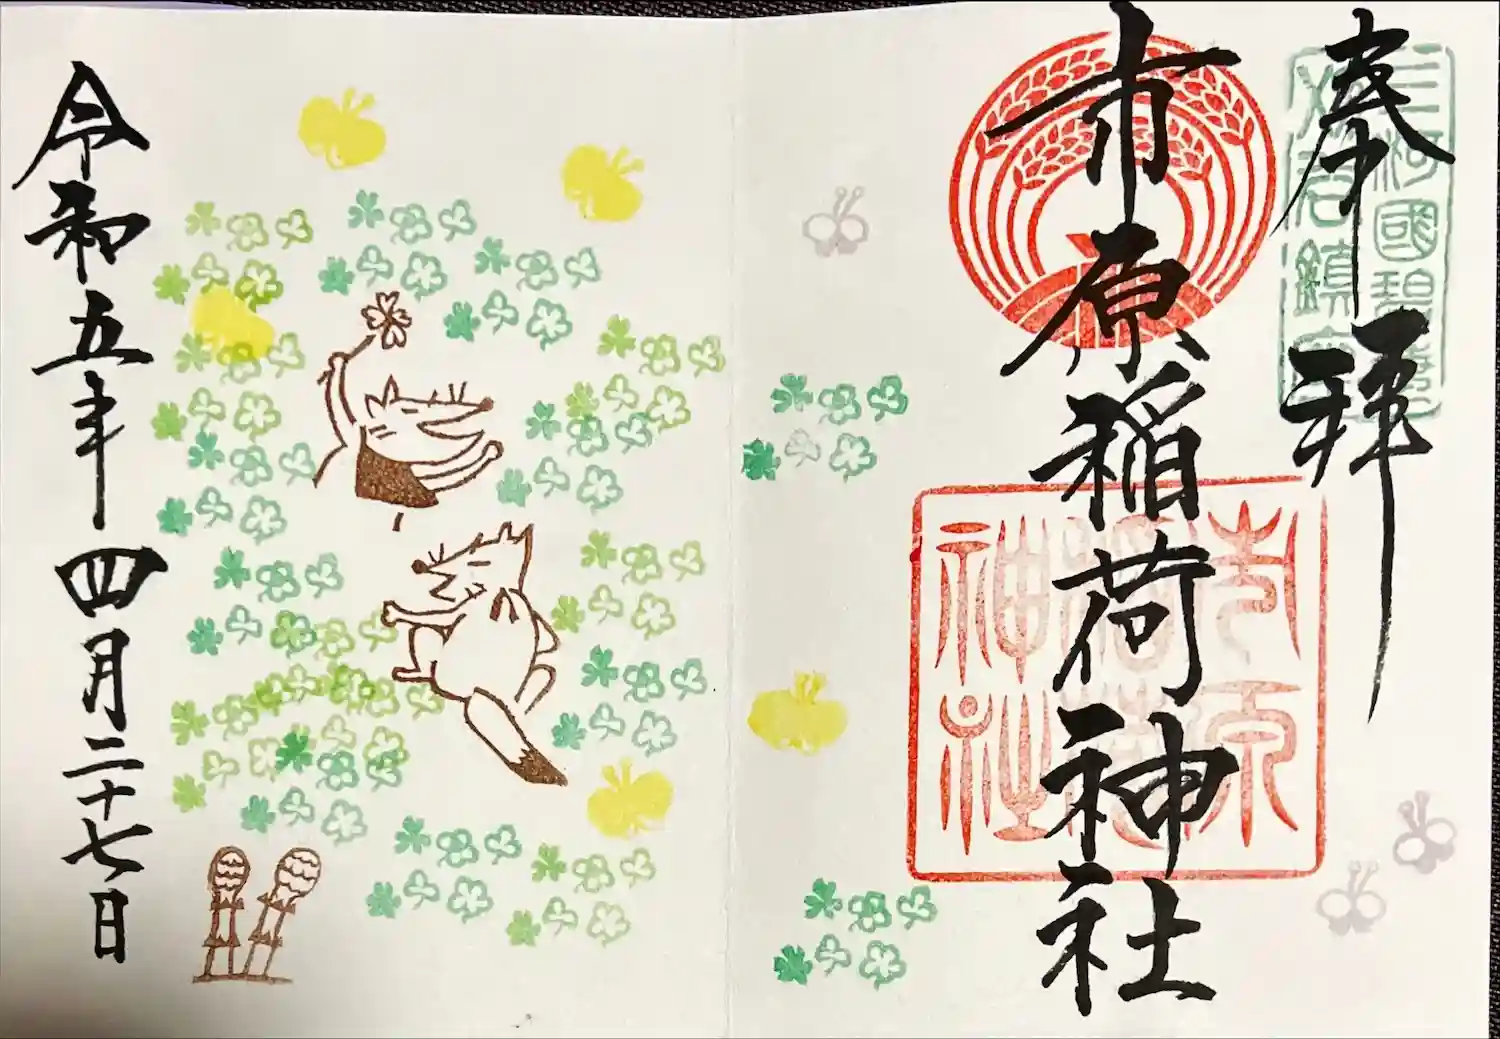 奉拝
三河國碧海
市原稲荷神社
市原
稲荷
神社
令和五年四月二十七日